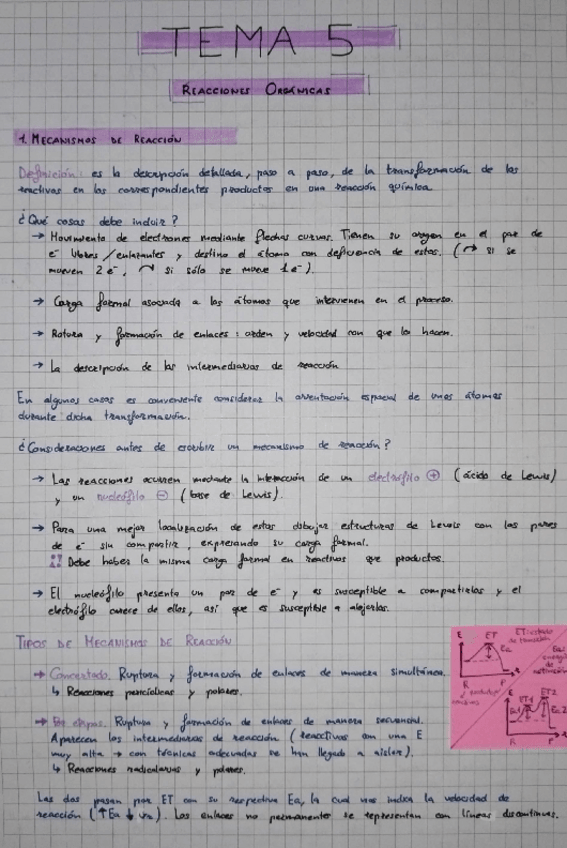 TEMA 5
REACCIONES ORGÁNICAS
1. MECANISMOS DE REACCIÓN
Definición: es la descripción detallada, paso a paso, de la transformación de los
reactivos en los correspondientes productos en una reacción química.
¿Qué cosas debe incluir?
→ Movimiento de electrones mediante flechas curvas. Tienen su origen en el par de
e⁻ libres/enlazantes y destino el átomo con deficiencia de estos. (↷ si se
mueven 2e⁻, ↷ si sólo se mueve 1e⁻).
→ Carga formal asociada a los átomos que intervienen en el proceso.
→ Rotura y formación de enlaces: orden y velocidad con que lo hacen.
→ La descripción de los intermediarios de reacción
En algunos casos es conveniente considerar la orientación espacial de unos átomos
durante dicha transformación.
¿Consideraciones antes de escribir un mecanismo de reacción?
→ Las reacciones ocurren mediante la interacción de un electrófilo ⊕ (ácido de Lewis)
y un nucleófilo ⊖ (base de Lewis).
→ Para una mejor localización de estos dibujar estructuras de Lewis con los pares
de e⁻ sin compartir, expresando su carga formal.
!! Debe haber la misma carga formal en reactivos que productos.
→ El nucleófilo presenta un par de e⁻ y es susceptible a compartirlos y el
electrófilo carece de ellos, así que es susceptible a alojarlos.
TIPOS DE MECANISMOS DE REACCIÓN
→ Concertado. Ruptura y formación de enlaces de manera simultánea.
↳ Reacciones pericíclicas y polares.
→ En etapas. Ruptura y formación de enlaces de manera secuencial.
Aparecen los intermediarios de reacción (reactivos con una E
muy alta → con técnicas adecuadas se han llegado a aislar).
↳ Reacciones radicalarias y polares.
Las dos pasan por ET con su respectiva Ea, la cual nos indica la velocidad de
reacción (↑Ea ↓vr). Los enlaces no permanentes se representan con líneas discontinuas.
E ET ET: estado
de transición
Ea
Ea:
energía
de
activación
R P
E ET1 ET2
Ea1 Ea2
R P